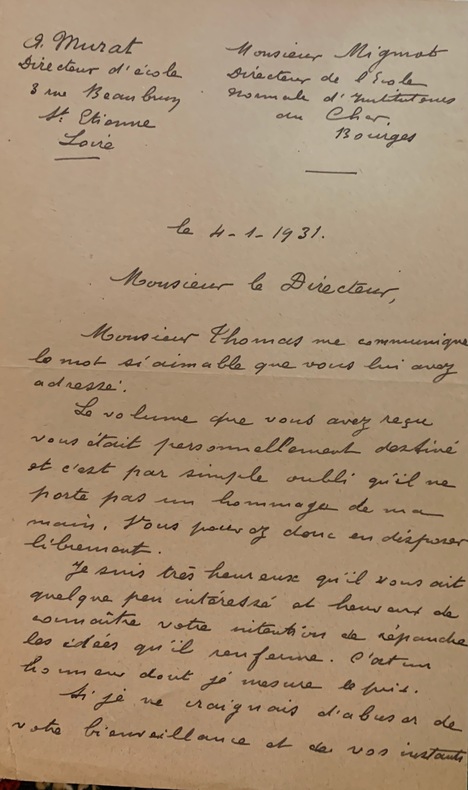 A. Murat
Directeur d'école
3 rue Beaubrun
St Etienne
Loire
Monsieur Mignot
Directeur de l'Ecole
normale d'Instituteurs
du Cher.
Bourges
le 4-1-1931.
Monsieur le Directeur,
Monsieur Thomas me communique
le mot si aimable que vous lui avez
adressé.
Le volume que vous avez reçu
vous était personnellement destiné
et c'est par simple oubli qu'il ne
porte pas un hommage de ma
main. Vous pouvez donc en disposer
librement.
Je suis très heureux qu'il vous ait
quelque peu intéressé et heureux de
connaître votre intention de répandre
les idées qu'il renferme. C'est un
honneur dont je mesure le prix.
Si je ne craignais d'abuser de
votre bienveillance et de vos instants